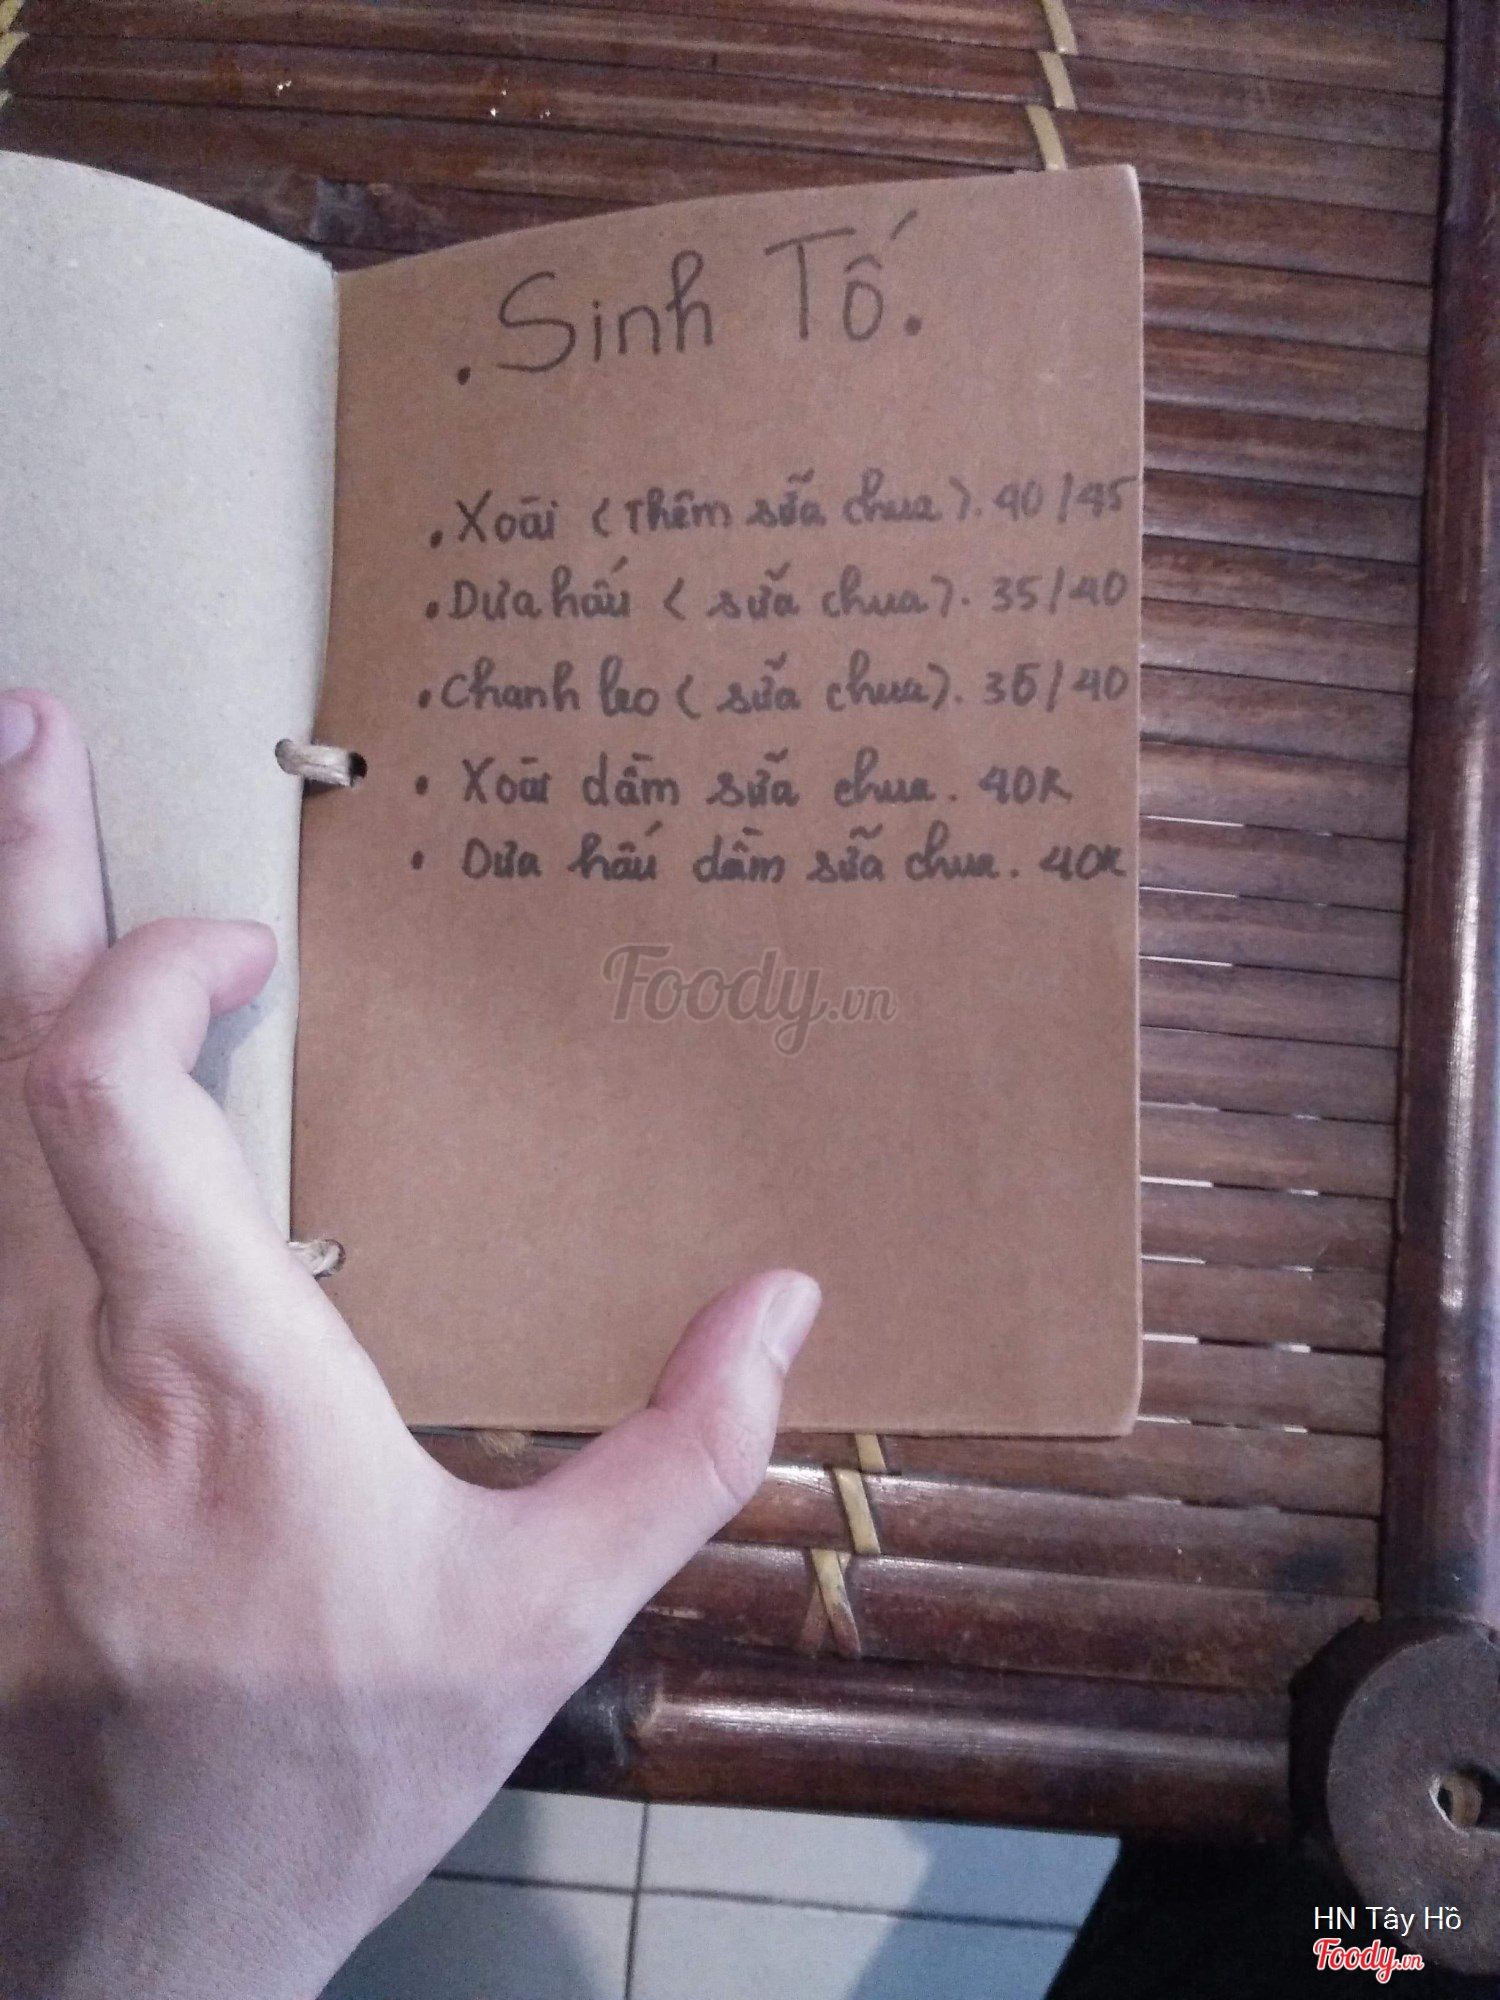 . Sinh Tố.
. Xoài (Thêm sữa chua). 40/45
. Dưa hấu (sữa chua). 35/40
. Chanh leo (sữa chua). 35/40
. Xoài dầm sữa chua. 40K
. Dưa hấu dầm sữa chua. 40K
Foody.vn
HN Tây Hồ
Foody.vn